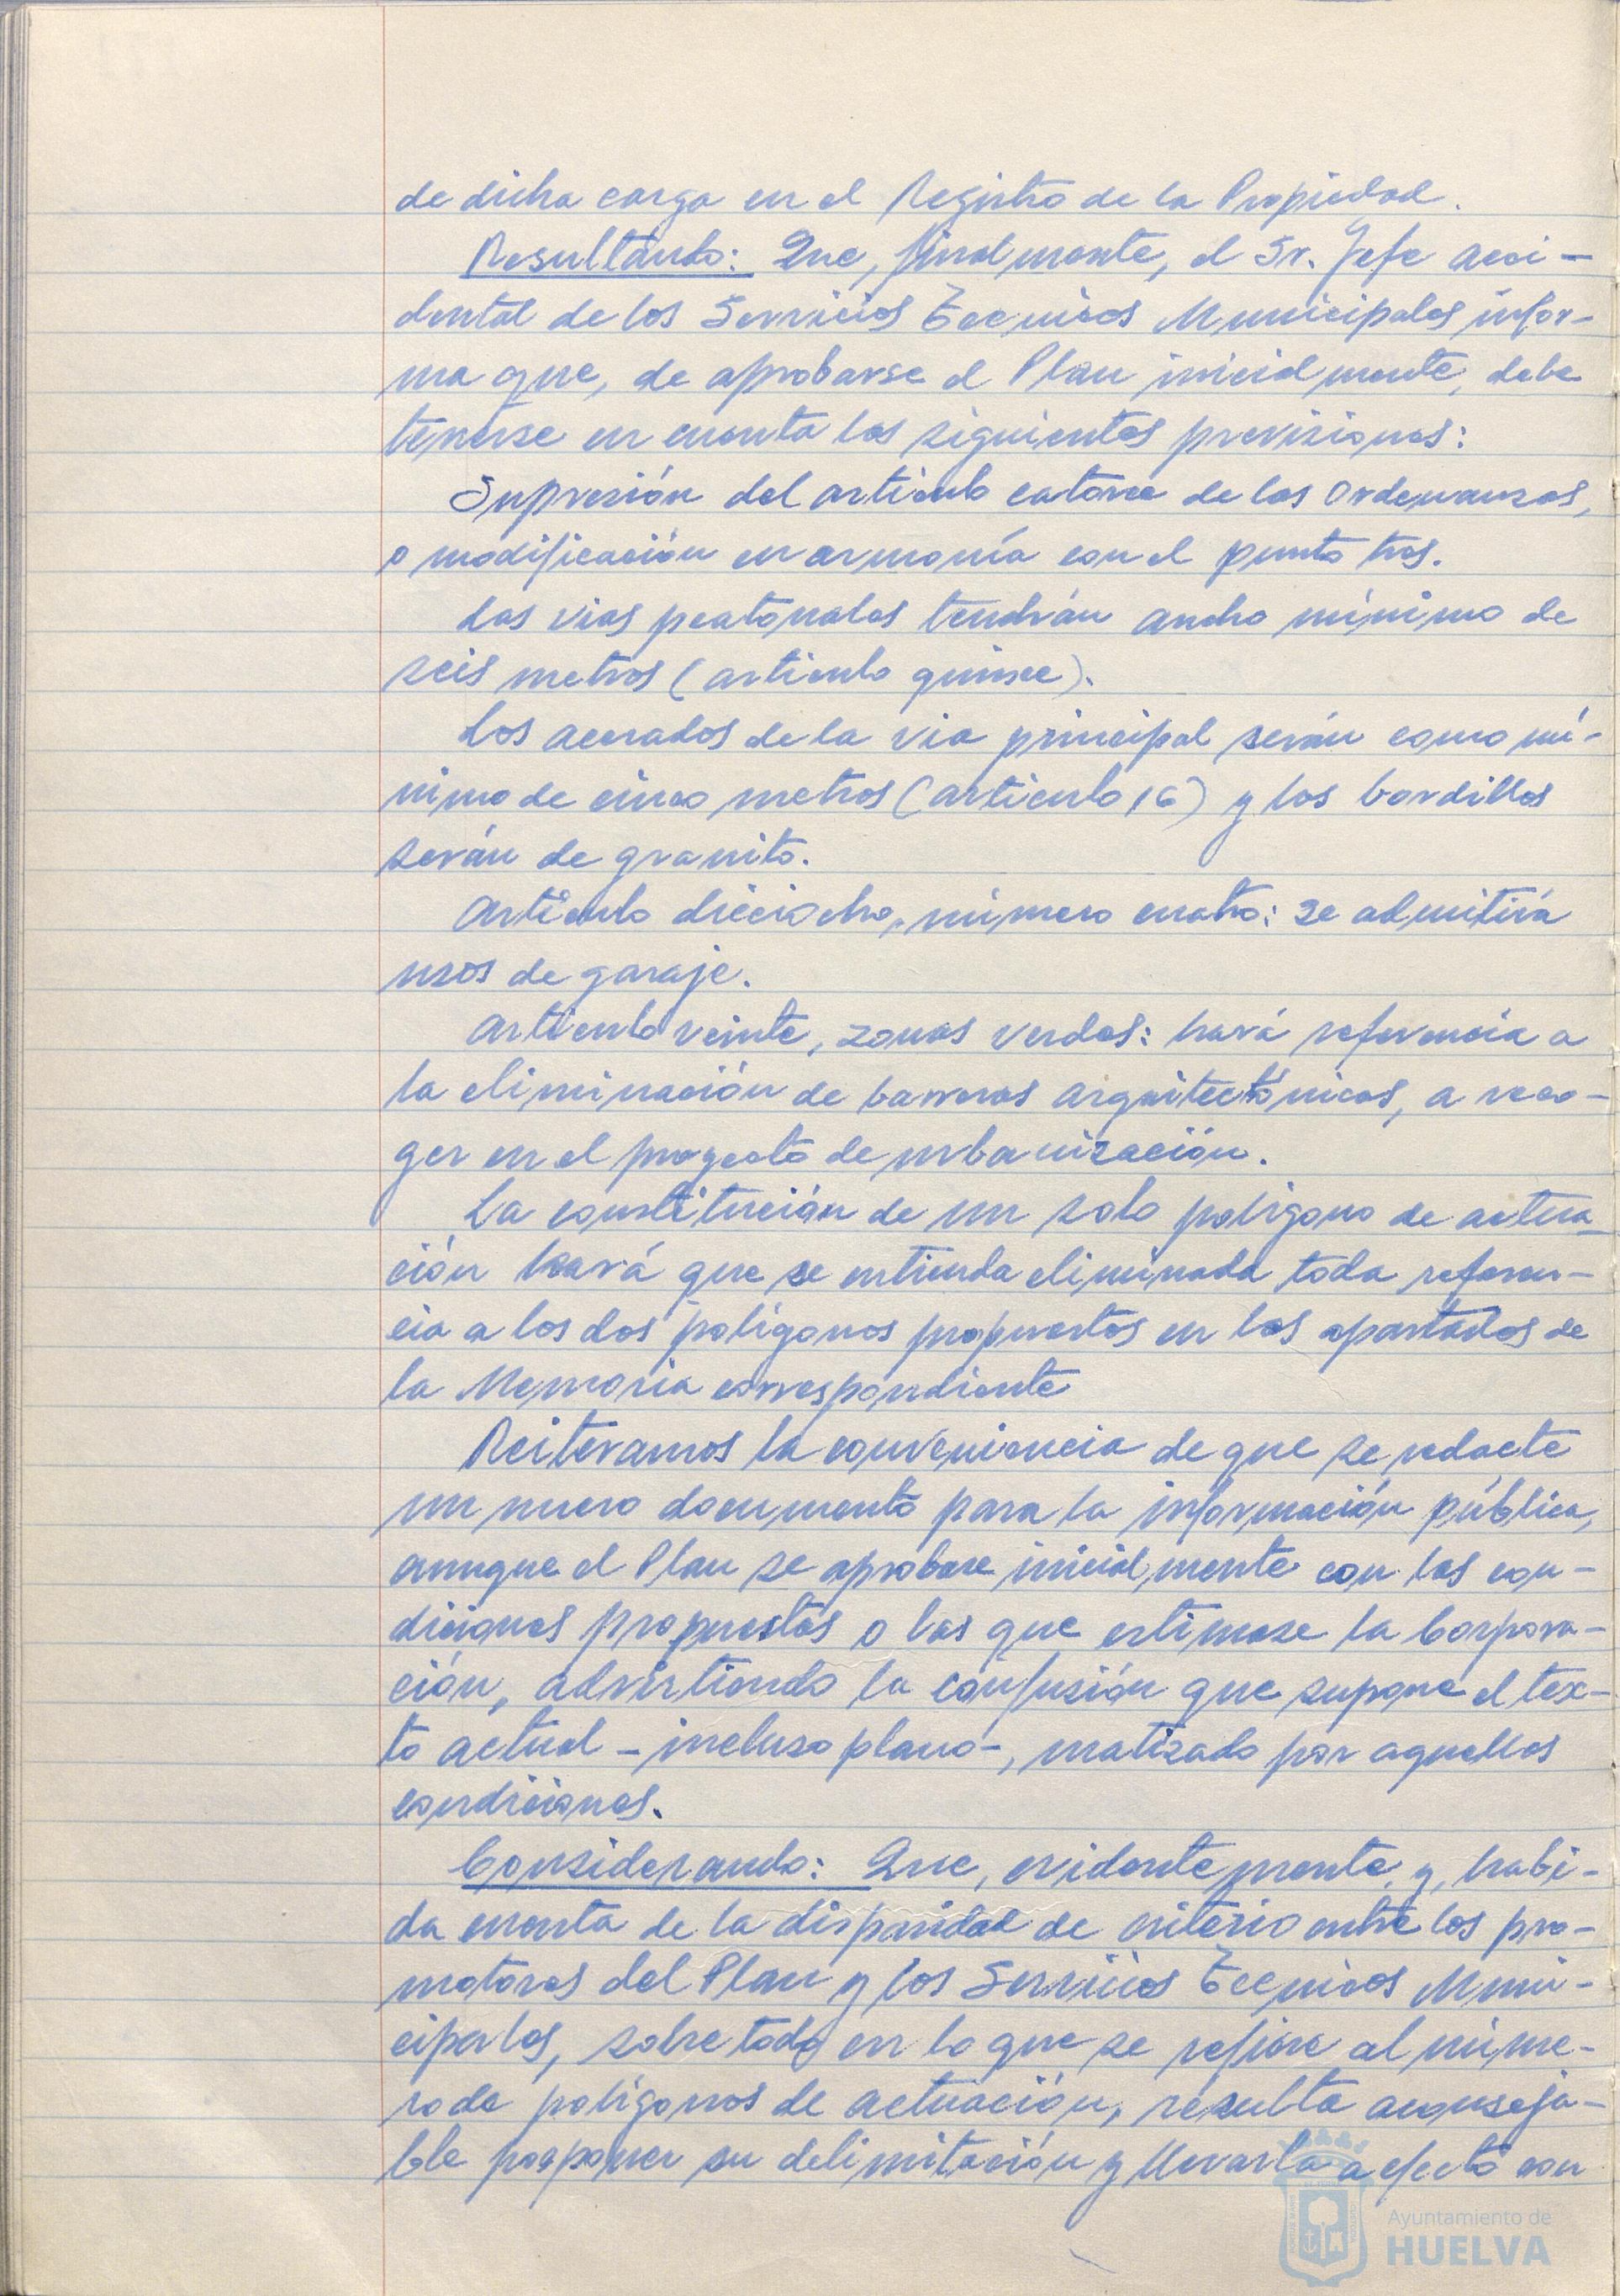 de dicha carga en el Registro de la Propiedad.
Resultando: Que, finalmente, el Sr. Jefe acci-
dental de los Servicios Tecnicos Municipales infor-
ma que, de aprobarse el Plan inicialmente, debe
tenerse en cuenta las siguientes previsiones:
Supresión del articulo catorce de las Ordenanzas,
o modificación en armonía con el punto tres.
Las vias peatonales tendrán ancho mínimo de
seis metros (articulo quince).
Los acerados de la via principal serán como mí-
nimo de cinco metros (articulo 16) y los bordillos
serán de granito.
Articulo dieciocho, número cuatro: se admitirá
usos de garaje.
Articulo veinte, zonas verdes: hará referencia a
la eliminación de barreras arquitectónicas, a reco-
ger en el proyecto de urbanización.
La constitución de un solo polígono de actua_
ción hará que se entienda eliminada toda referen-
cia a los dos polígonos propuestos en los apartados de
la Memoria correspondiente
Reiteramos la conveniencia de que se redacte
un nuevo documento para la información pública,
aunque el Plan se aprobare inicialmente con las con-
diciones propuestas o las que estimase la Corpora-
ción, advirtiendo la confusión que supone el tex-
to actual - incluso plano -, matizado por aquellas
condiciones.
Considerando: Que, evidentemente, y, habi-
da cuenta de la disparidad de criterio entre los pro-
motores del Plan y los Servicios Tecnicos Muni-
cipales, sobre todo en lo que se refiere al núme-
ro de polígonos de actuación, resulta aconseja-
ble posponer su delimitación y llevarla a efecto con
Ayuntamiento de
HUELVA